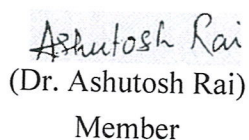 Ashutosh Rai
(Dr. Ashutosh Rai)
Member